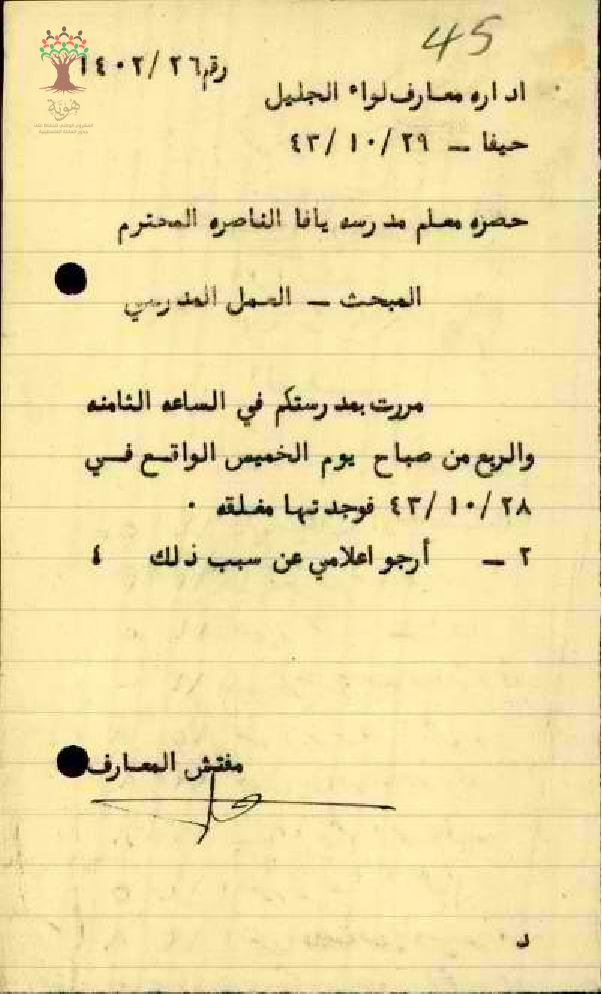 45
رقم ١٤٠٢/٢٦
اداره معارف لواء الجليل
حيفا – ٤٣/١٠/٢٩
حضره معلم مدرسه يافا الناصره المحترم
المبحث – العمل المدرسي
مررت بمدرستكم في الساعه الثامنه
والربع من صباح يوم الخميس الواقع في
٤٣/١٠/٢٨ فوجدتها مغلقه .
٢ – أرجو اعلامي عن سبب ذلك ٤
مفتش المعارف
د
هوية